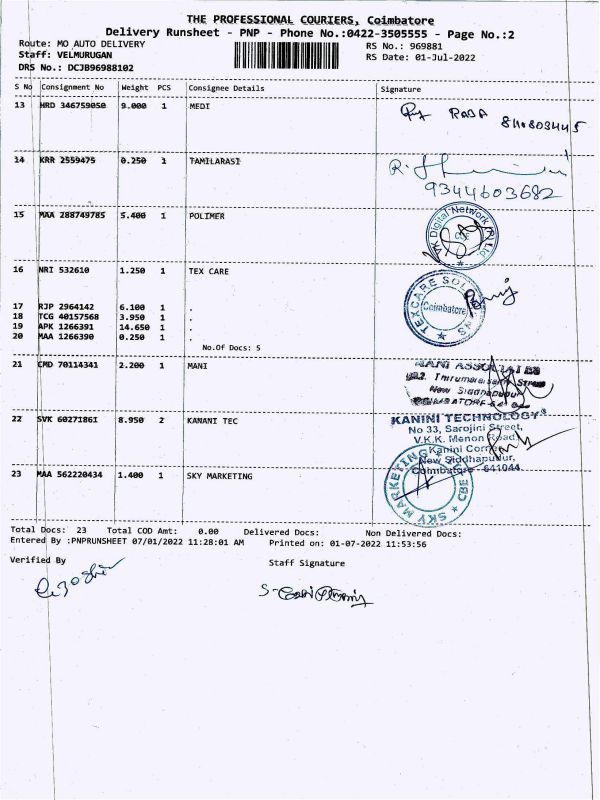 THE PROFESSIONAL COURIERS, Coimbatore
Delivery Runsheet - PNP - Phone No.:0422-3505555 - Page No.:2
Route: MO AUTO DELIVERY RS No.: 969881
Staff: VELMURUGAN RS Date: 01-Jul-2022
DRS No.: DCJB96988102
S No Consignment No Weight PCS Consignee Details Signature
13 HRD 346759050 9.000 1 MEDI
14 KRR 2559475 0.250 1 TAMILARASI
9344603682
15 MAA 288749785 5.400 1 POLIMER
VK Digital Network (P) Ltd.
CBE
16 NRI 532610 1.250 1 TEX CARE
TEXCARE SOLUTIONS
Coimbatore
17 RJP 2964142 6.100 1 .
18 TCG 40157568 3.950 1 .
19 APK 1266391 14.650 1 .
20 MAA 1266390 0.250 1 .
No.Of Docs: 5
21 CMD 70114341 2.200 1 MANI
MANI ASSOCIATES
New Siddhapudur
22 SVK 60271861 8.950 2 KANANI TEC
KANINI TECHNOLOGY
No 33, Sarojini Street,
V.K.K. Menon Road,
Kanini Corner,
New Siddhapudur,
Coimbatore - 641044.
23 MAA 562220434 1.400 1 SKY MARKETING
SKY MARKETING
CBE
Total Docs: 23 Total COD Amt: 0.00 Delivered Docs: Non Delivered Docs:
Entered By :PNPRUNSHEET 07/01/2022 11:28:01 AM Printed on: 01-07-2022 11:53:56
Verified By Staff Signature